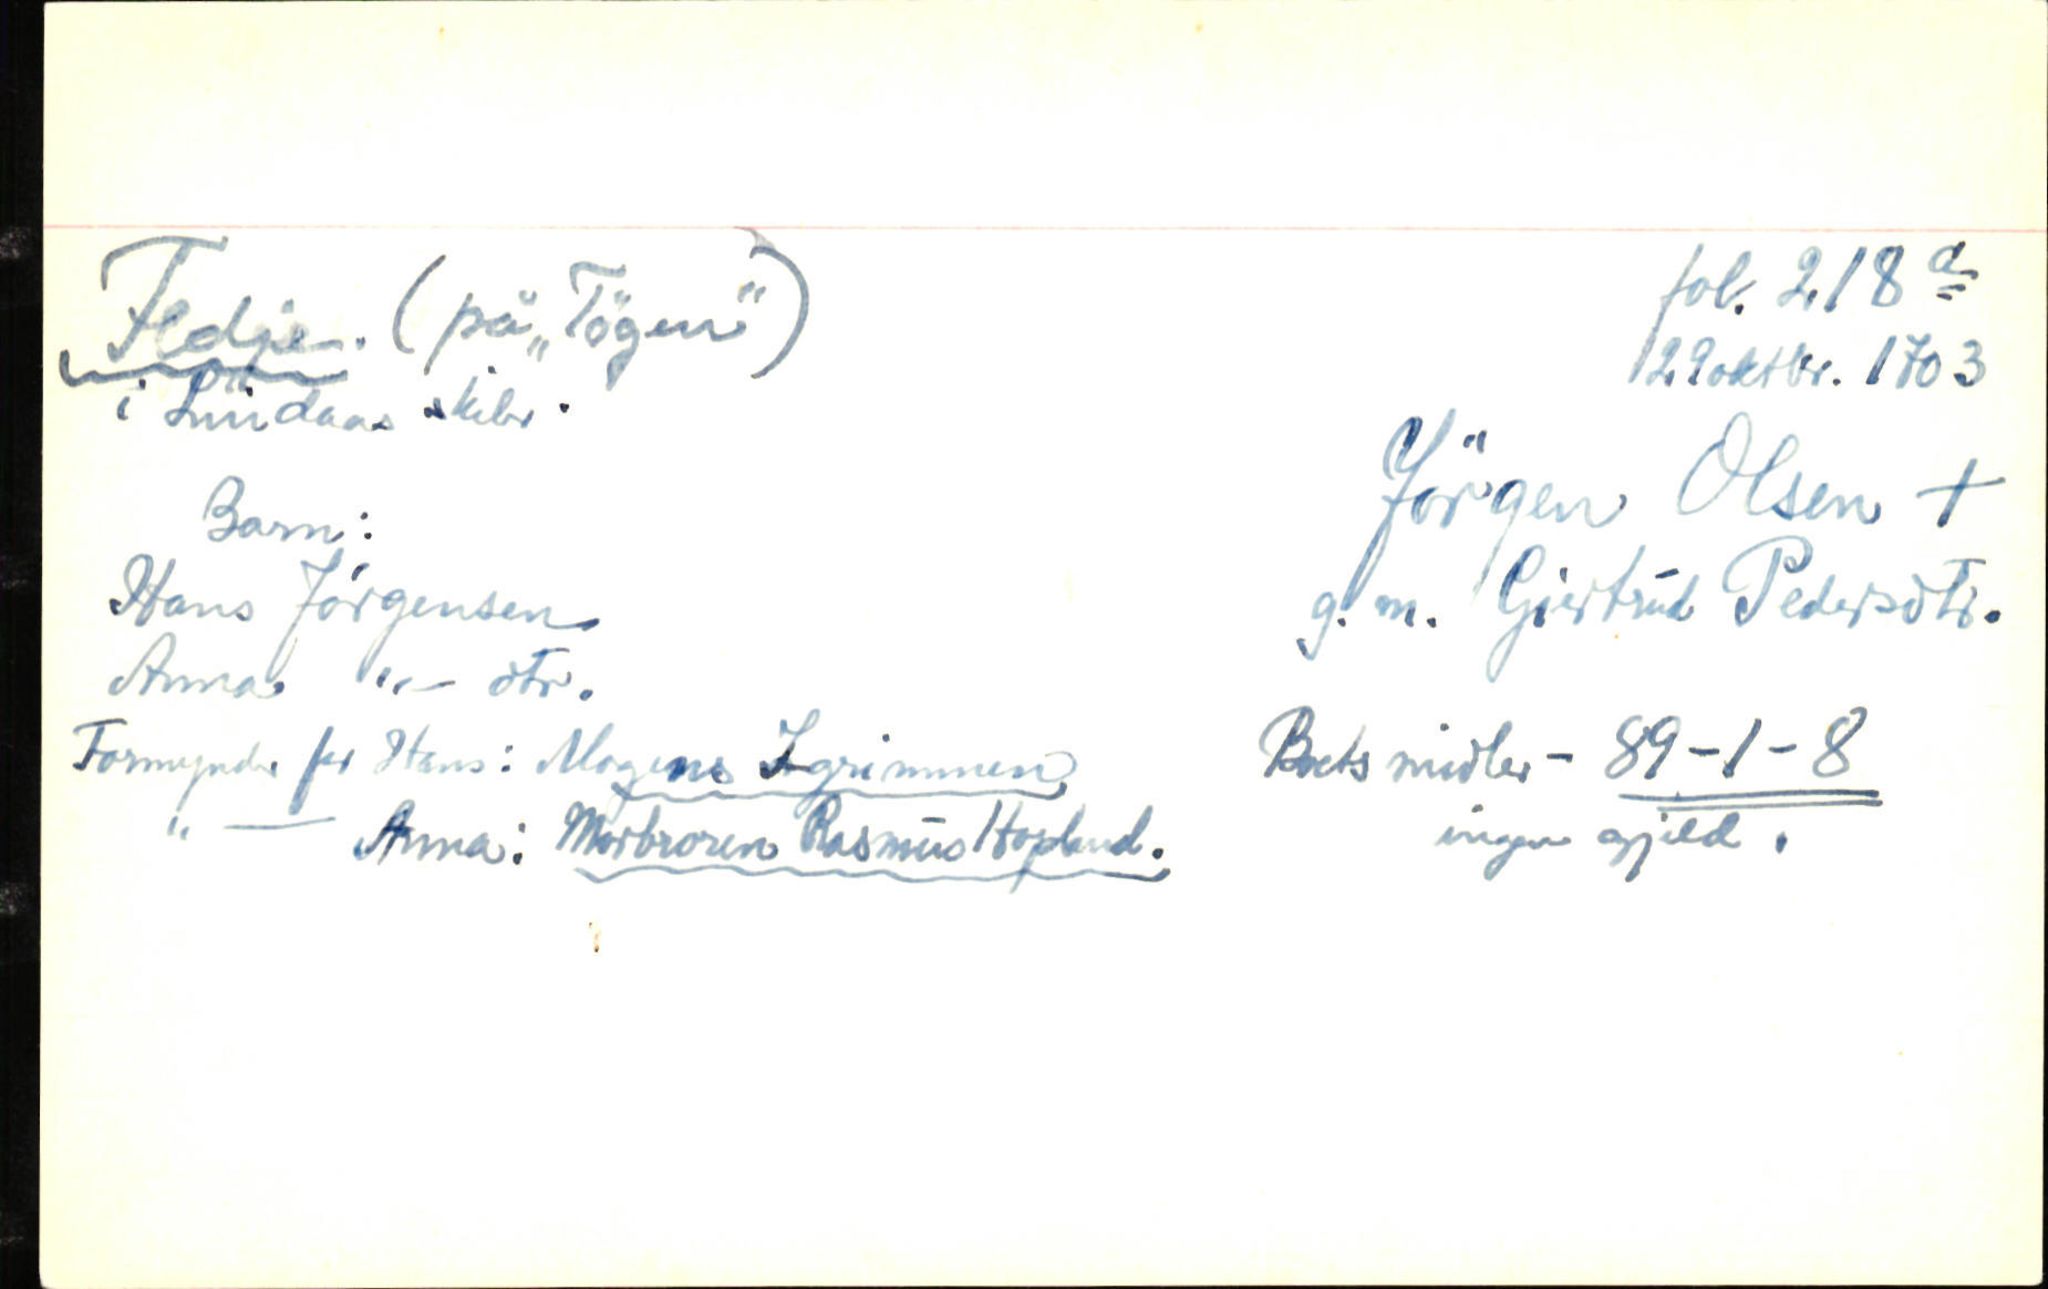 Fedje. (på „Tögen“)
i Lindaas skibr.
fol. 218 a
29 oktbr. 1703
Jörgen Olsen +
g. m. Gjertrud Pedersdtr.
Barn:
Hans Jörgensen
Anna "— dtr.
Formynder for Hans: Mogens
" — Anna: Morbroren Rasmus Hopland.
Boets midler - 89-1-8
ingen gjeld.